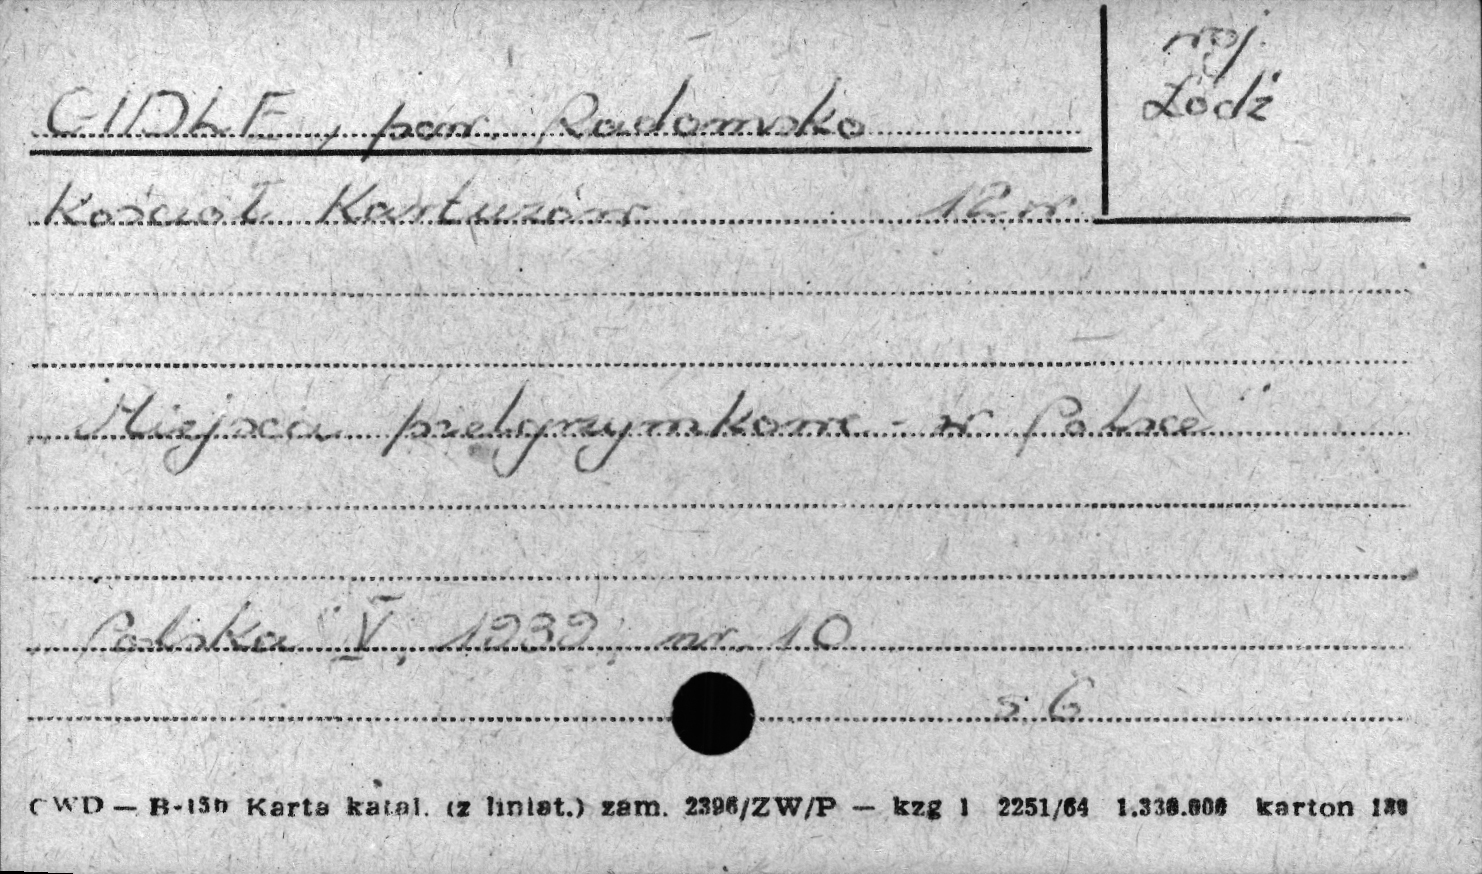 GIDLE, pow. Radomsko
woj.
Łódź
Kościół Kartuzów 12 w.
"Miejsca pielgrzymkowe w Polsce"
Polska V, 1939, nr. 10
s. 6
CWD — B-15b Karta katal. (z liniat.) zam. 2396/ZW/P — kzg 1 2251/64 1.330.000 karton